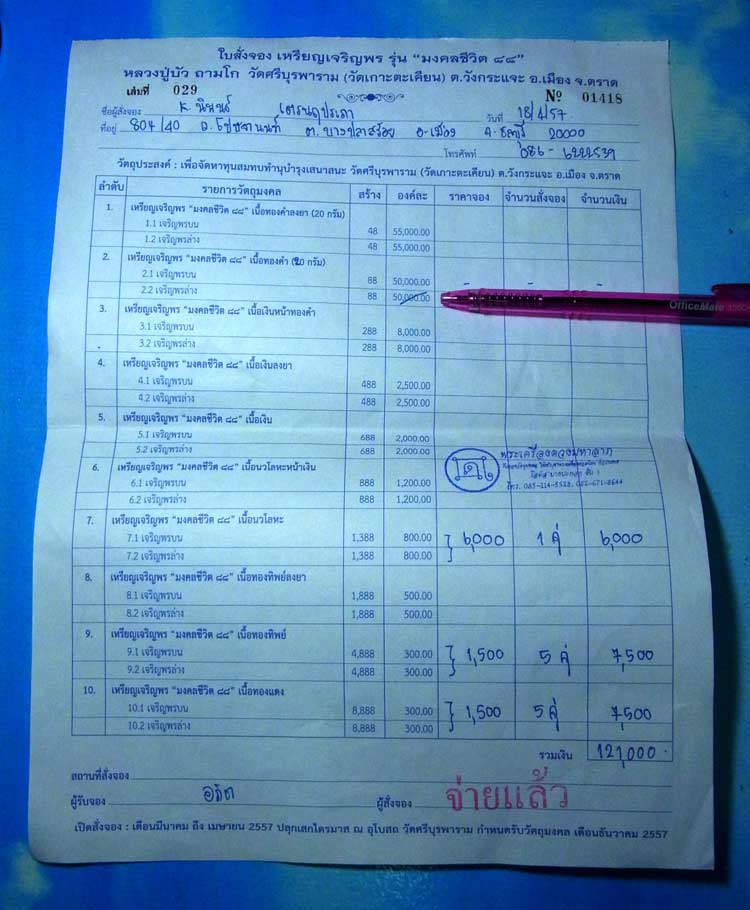 ใบสั่งจอง เหรียญเจริญพร รุ่น “มงคลชีวิต ๘๘”
หลวงปู่บัว ถามโก วัดศรีบุรพาราม (วัดเกาะตะเคียน) ต.วังกระแจะ อ.เมือง จ.ตราด
เล่มที่ 029 Nº 01418
ชื่อผู้สั่งจอง วันที่ 18/4/57
ที่อยู่ 804/40 ต. บางปลาสร้อย อ.เมือง จ. ชลบุรี 20000
โทรศัพท์ 086-6222539
วัตถุประสงค์ : เพื่อจัดหาทุนสมทบทำนุบำรุงเสนาสนะ วัดศรีบุรพาราม (วัดเกาะตะเคียน) ต.วังกระแจะ อ.เมือง จ.ตราด
ลำดับ รายการวัตถุมงคล สร้าง องค์ละ ราคาจอง จำนวนสั่งจอง จำนวนเงิน
1. เหรียญเจริญพร “มงคลชีวิต ๘๘” เนื้อทองคำลงยา (20 กรัม)
1.1 เจริญพรบน 48 55,000.00
1.2 เจริญพรล่าง 48 55,000.00
2. เหรียญเจริญพร “มงคลชีวิต ๘๘” เนื้อทองคำ (20 กรัม)
2.1 เจริญพรบน 88 50,000.00 - - -
2.2 เจริญพรล่าง 88 50,000.00
OfficeMate
3. เหรียญเจริญพร “มงคลชีวิต ๘๘” เนื้อเงินหน้าทองคำ
3.1 เจริญพรบน 288 8,000.00
3.2 เจริญพรล่าง 288 8,000.00
4. เหรียญเจริญพร “มงคลชีวิต ๘๘” เนื้อเงินลงยา
4.1 เจริญพรบน 488 2,500.00
4.2 เจริญพรล่าง 488 2,500.00
5. เหรียญเจริญพร “มงคลชีวิต ๘๘” เนื้อเงิน
5.1 เจริญพรบน 688 2,000.00
5.2 เจริญพรล่าง 688 2,000.00
พระเครื่องดวงมหาลาภ
6. เหรียญเจริญพร “มงคลชีวิต ๘๘” เนื้อนวโลหะหน้าเงิน
6.1 เจริญพรบน 888 1,200.00
โทร.
6.2 เจริญพรล่าง 888 1,200.00
7. เหรียญเจริญพร “มงคลชีวิต ๘๘” เนื้อนวโลหะ
7.1 เจริญพรบน 1,388 800.00 6,000 1 คู่ 6,000
7.2 เจริญพรล่าง 1,388 800.00
8. เหรียญเจริญพร “มงคลชีวิต ๘๘” เนื้อทองทิพย์ลงยา
8.1 เจริญพรบน 1,888 500.00
8.2 เจริญพรล่าง 1,888 500.00
9. เหรียญเจริญพร “มงคลชีวิต ๘๘” เนื้อทองทิพย์
9.1 เจริญพรบน 4,888 300.00 1,500 5 คู่ 7,500
9.2 เจริญพรล่าง 4,888 300.00
10. เหรียญเจริญพร “มงคลชีวิต ๘๘” เนื้อทองแดง
10.1 เจริญพรบน 8,888 300.00 1,500 5 คู่ 7,500
10.2 เจริญพรล่าง 8,888 300.00
รวมเงิน 121,000
สถานที่สั่งจอง
ผู้รับจอง ผู้สั่งจอง จ่ายแล้ว
เปิดสั่งจอง : เดือนมีนาคม ถึง เมษายน 2557 ปลุกเสกไตรมาส ณ อุโบสถ วัดศรีบุรพาราม กำหนดรับวัตถุมงคล เดือนธันวาคม 2557